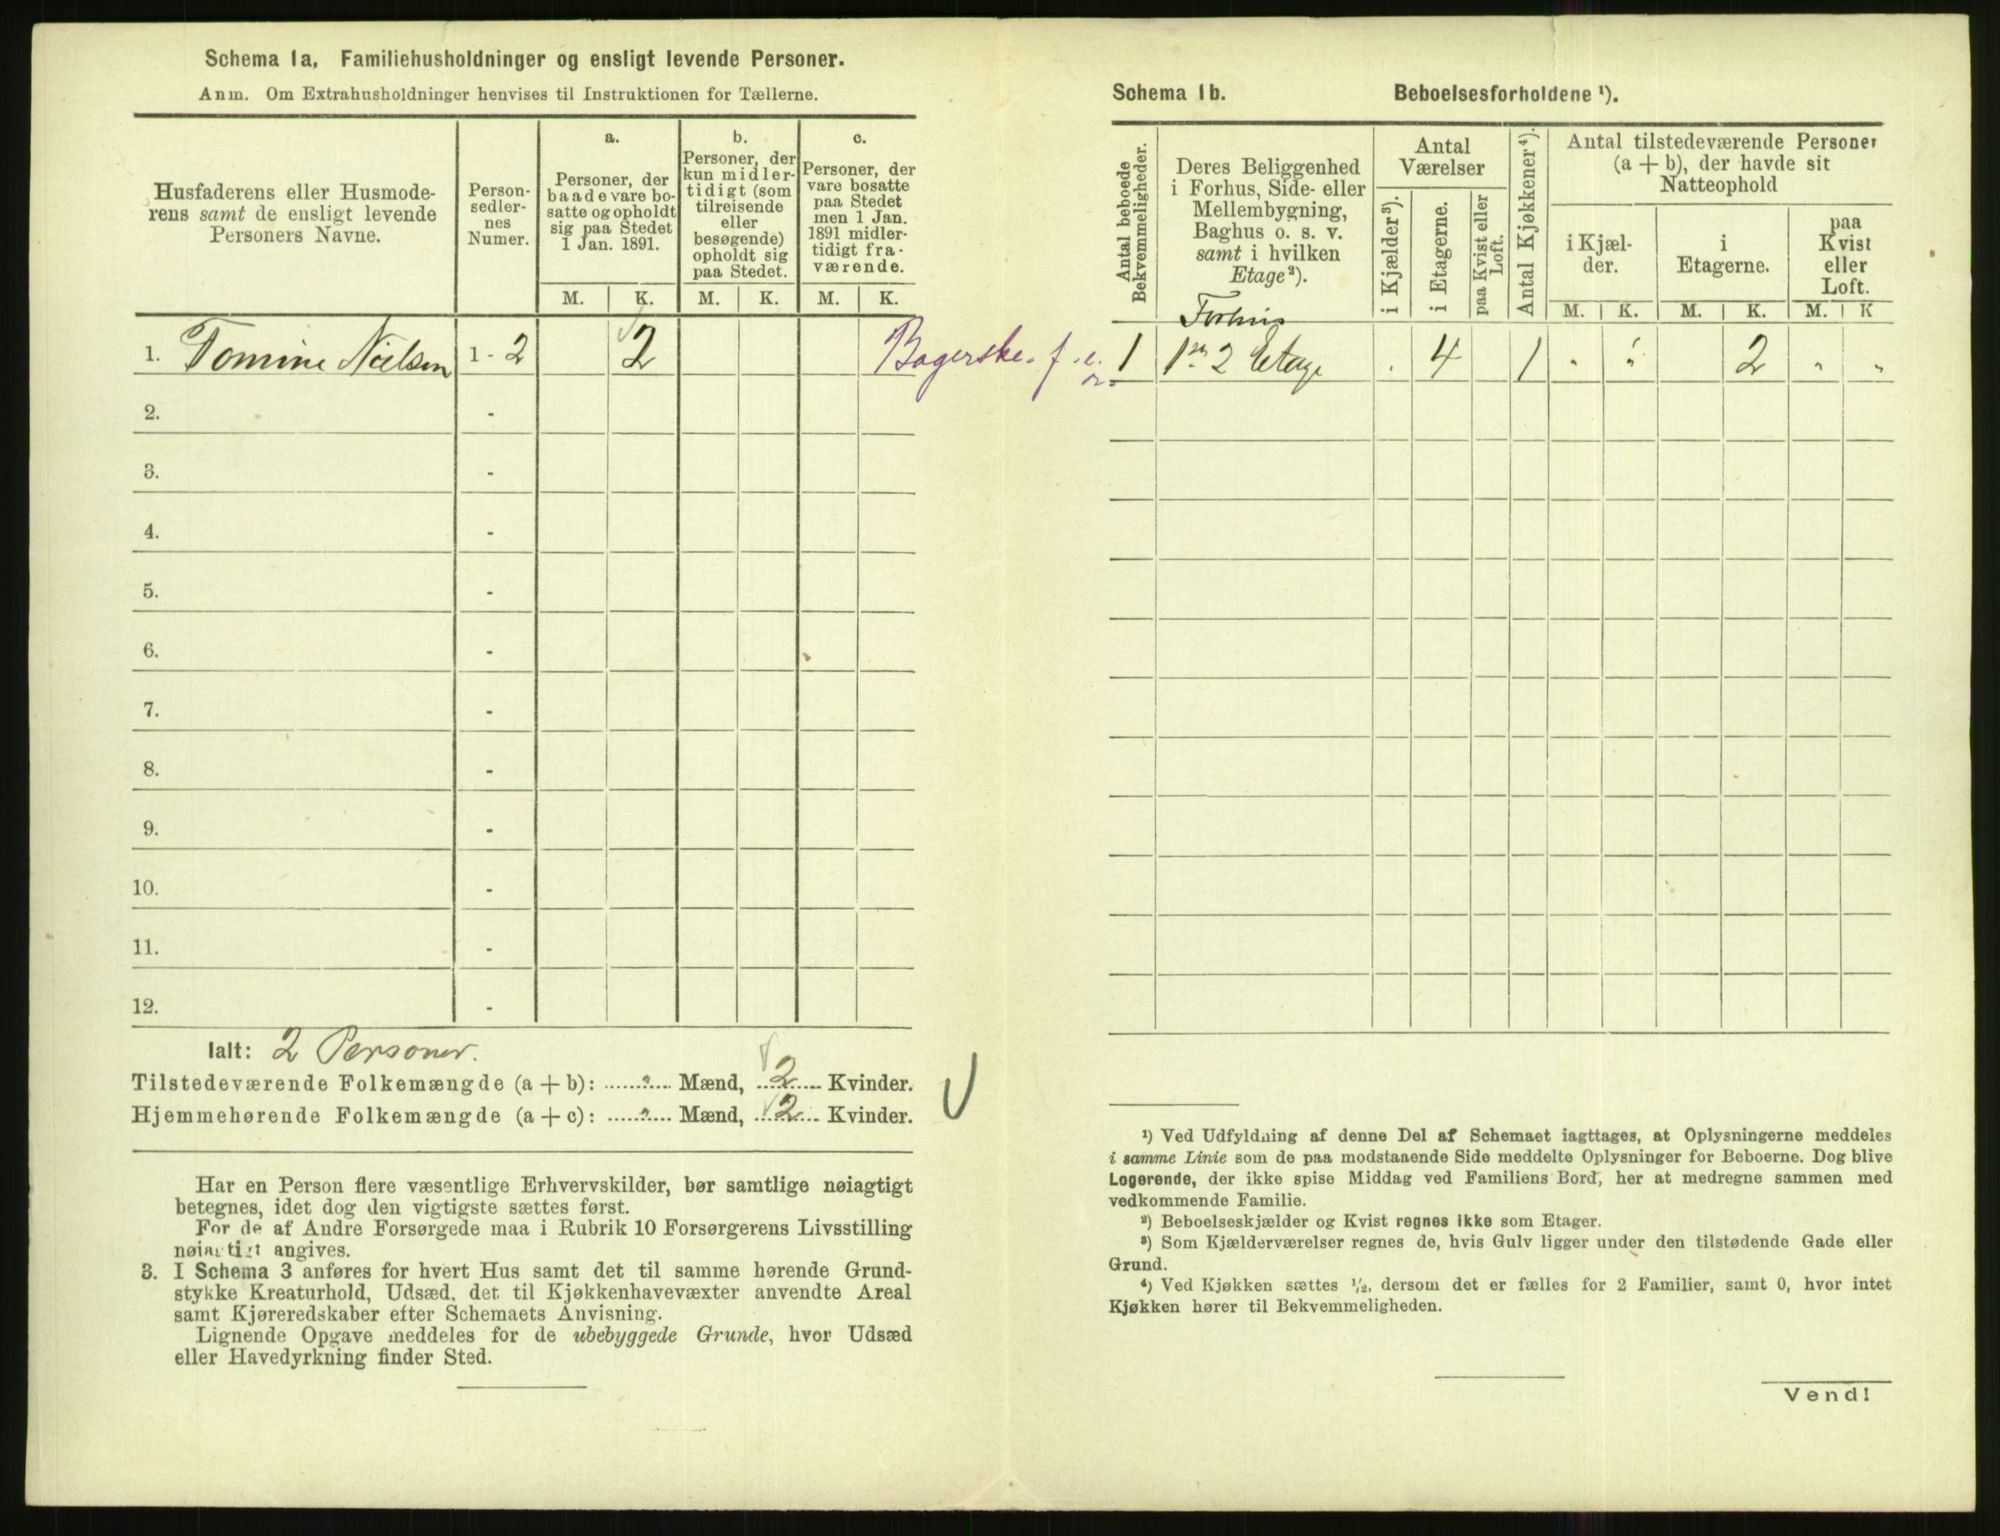 Schema 1a, Familiehusholdninger og ensligt levende Personer.
Anm. Om Extrahusholdninger henvises til Instruktionen for Tællerne.
Husfaderens eller Husmoderens samt de ensligt levende Personers Navne.
Personsedlernes Numer.
a. Personer, der baade vare bosatte og opholdt sig paa Stedet 1 Jan. 1891.
b. Personer, der kun midlertidigt (som tilreisende eller besøgende) opholdt sig paa Stedet.
c. Personer, der vare bosatte paa Stedet men 1 Jan. 1891 midlertidigt fraværende.
M. K. M. K. M. K.
1. Tomine Nielsen 1 - 2 2 Bagerske. f.
2. -
3. -
4. -
5. -
6. -
7. -
8. -
9. -
10. -
11. -
12. -
Ialt: 2 Personer.
Tilstedeværende Folkemængde (a + b): " Mænd, 2 Kvinder.
Hjemmehørende Folkemængde (a + c): " Mænd, 2 Kvinder.
Har en Person flere væsentlige Erhvervskilder, bør samtlige nøiagtigt
betegnes, idet dog den vigtigste sættes først.
For de af Andre Forsørgede maa i Rubrik 10 Forsørgerens Livsstilling
nøiagtigt angives.
3. I Schema 3 anføres for hvert Hus samt det til samme hørende Grund-
stykke Kreaturhold, Udsæd, det til Kjøkkenhavevæxter anvendte Areal
samt Kjøreredskaber efter Schemaets Anvisning.
Lignende Opgave meddeles for de ubebyggede Grunde, hvor Udsæd
eller Havedyrkning finder Sted.
Schema 1b. Beboelsesforholdene ¹).
Antal beboede Bekvemmeligheder.
Deres Beliggenhed i Forhus, Side- eller Mellembygning, Baghus o. s. v. samt i hvilken Etage²).
Antal Værelser
i Kjælder³).
i Etagerne.
paa Kvist eller Loft.
Antal Kjøkkener⁴).
Antal tilstedeværende Personer (a + b), der havde sit Natteophold
i Kjælder.
i Etagerne.
paa Kvist eller Loft.
M. K. M. K. M. K
Forhus
1 2 Etage . 4 1 " " 2 " "
¹) Ved Udfyldning af denne Del af Schemaet iagttages, at Oplysningerne meddeles
i samme Linie som de paa modstaaende Side meddelte Oplysninger for Beboerne. Dog blive
Logerende, der ikke spise Middag ved Familiens Bord, her at medregne sammen med
vedkommende Familie.
²) Beboelseskjælder og Kvist regnes ikke som Etager.
³) Som Kjælderværelser regnes de, hvis Gulv ligger under den tilstødende Gade eller
Grund.
⁴) Ved Kjøkken sættes ½, dersom det er fælles for 2 Familier, samt 0, hvor intet
Kjøkken hører til Bekvemmeligheden.
Vend!